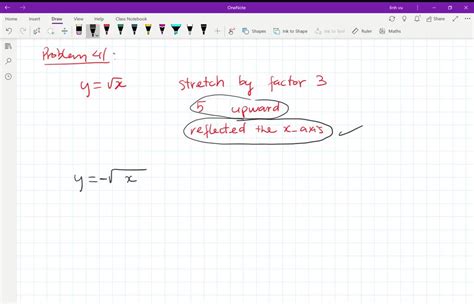 OneNote
linh vu
File Home Insert Draw View Help Class Notebook
Shapes Ink to Shape Ink to Text Math
Problem 41.
y = √x stretch by factor 3
5 upward
reflected the x-axis ✓
y = -√x